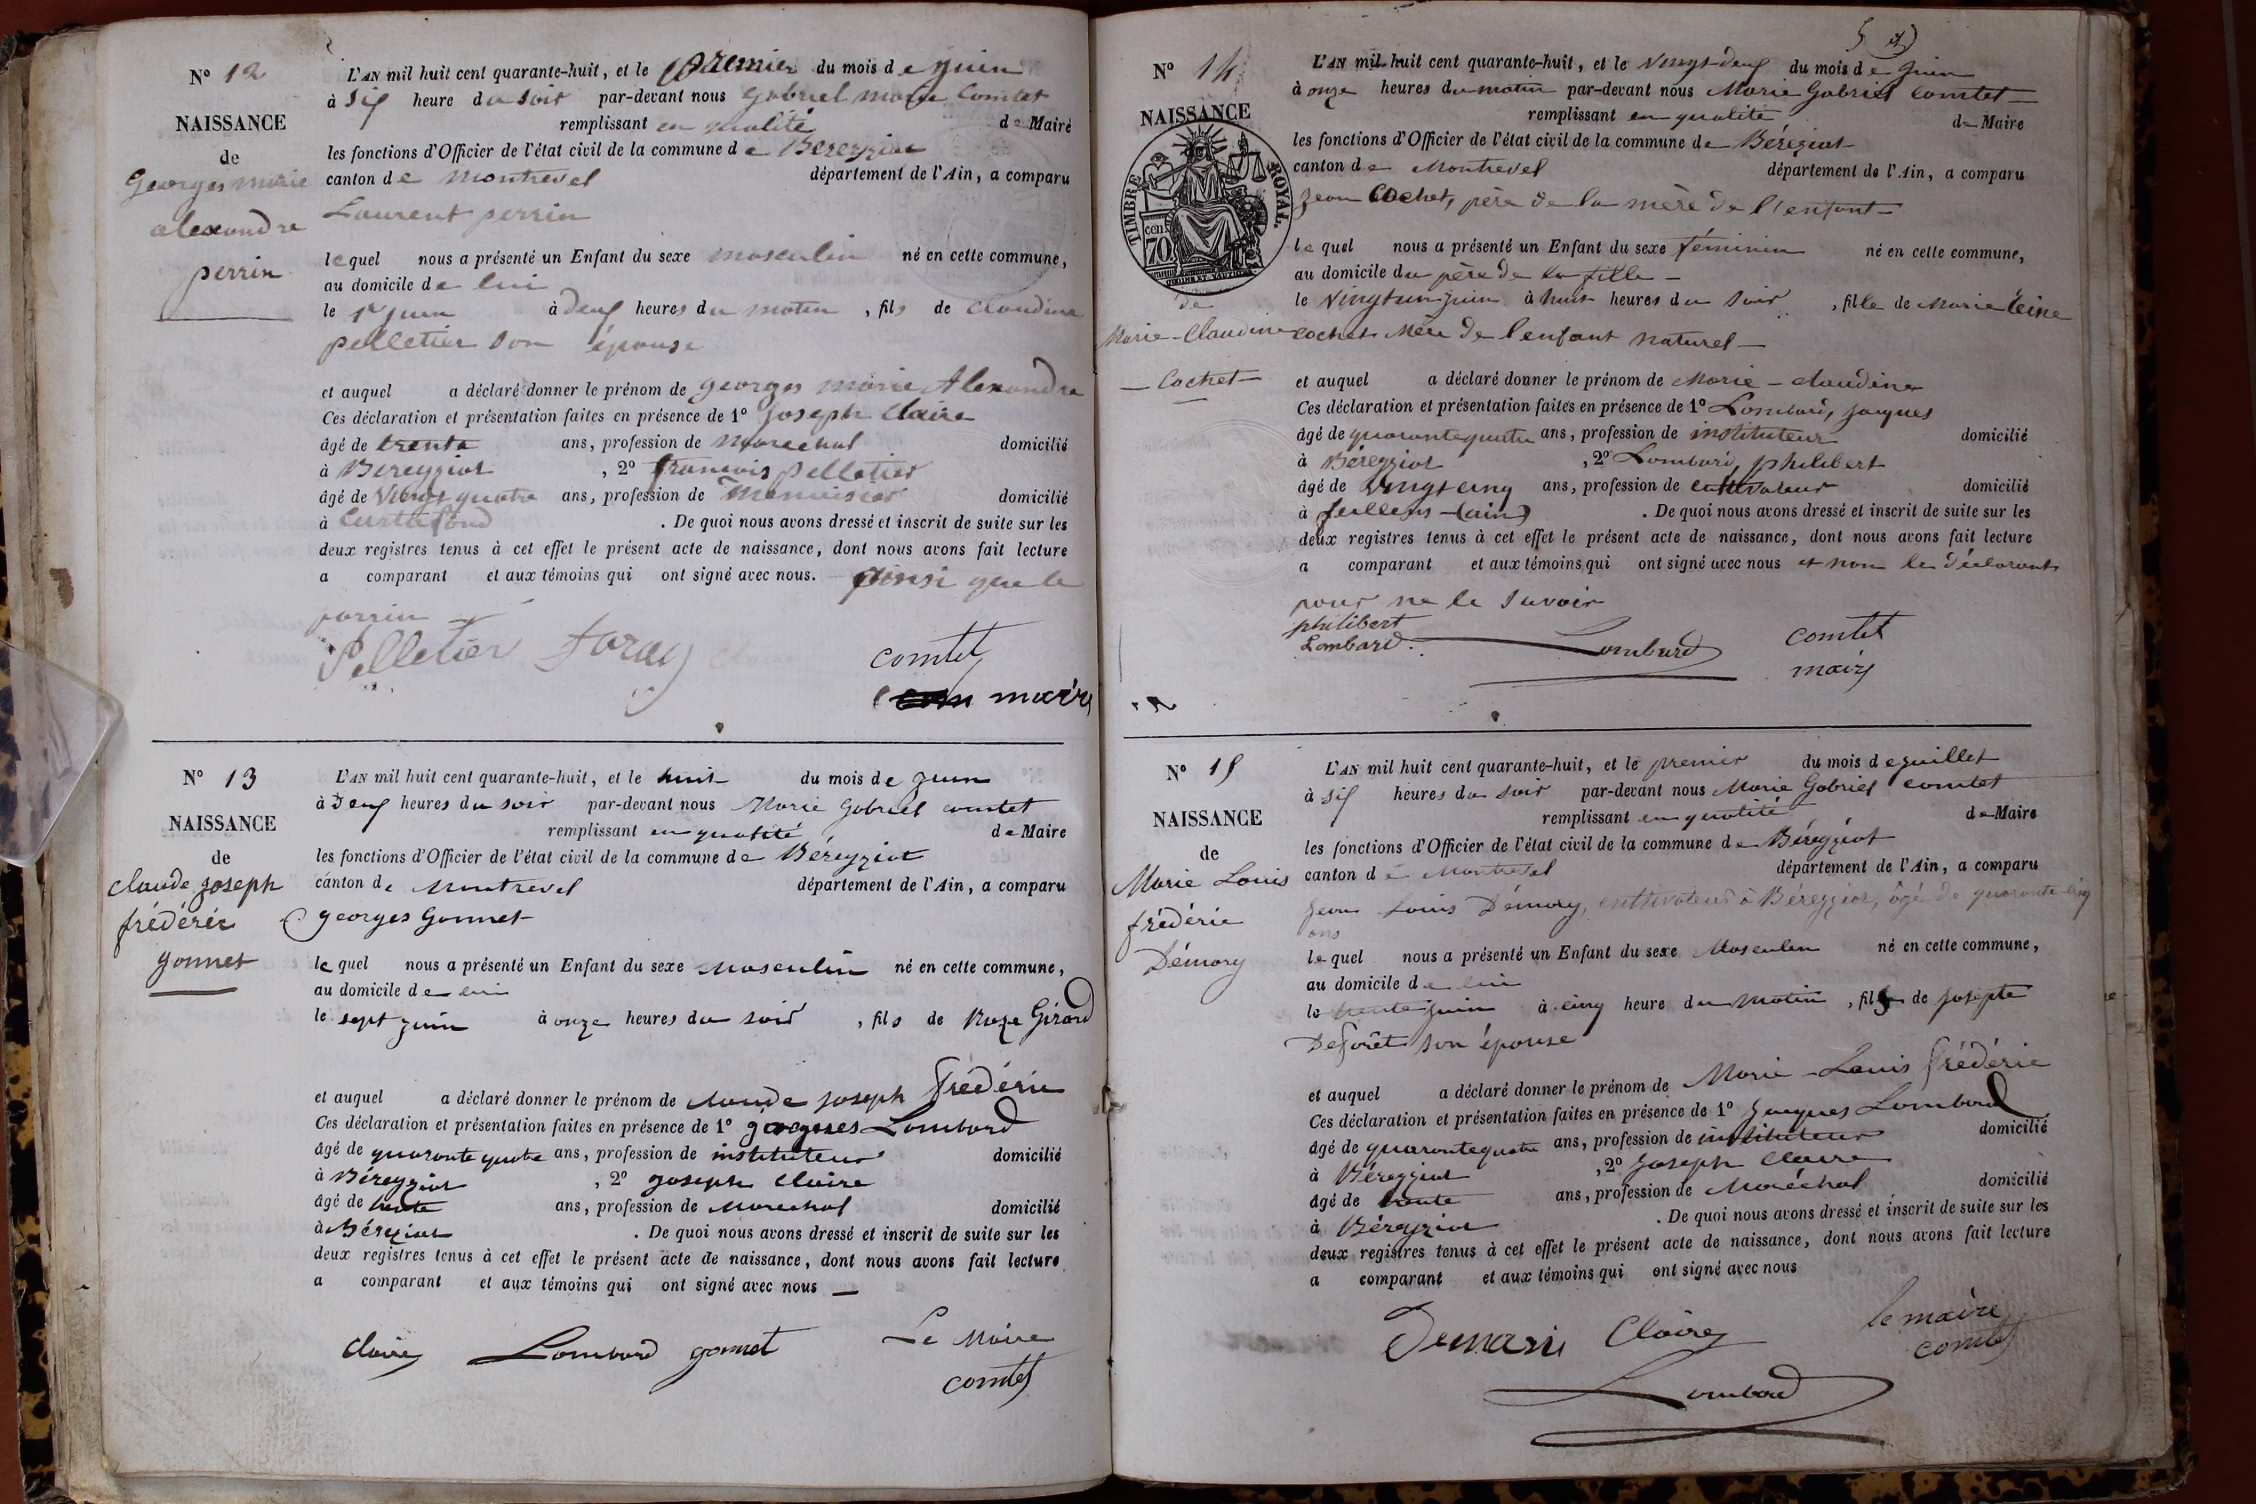 N° 12
NAISSANCE
de
Georges marie
alexandre
perrin
L'AN mil huit cent quarante-huit, et le premier du mois de juin
à six heure du soir par-devant nous gabriel marie Comtet
remplissant en qualité de Maire
les fonctions d'Officier de l'état civil de la commune de Béreyziat
canton de montrevel département de l'Ain, a comparu
Laurent perrin
lequel nous a présenté un Enfant du sexe masculin né en cette commune,
au domicile de lui
le 1er juin à deux heures du matin, fils de claudine
pelletier son épouse
et auquel a déclaré donner le prénom de georges marie Alexandre
Ces déclaration et présentation faites en présence de 1° Joseph Claire
âgé de trente ans, profession de marechal domicilié
à Bereyziat, 2° francois pelletier
âgé de Vingt quatre ans, profession de Menuisier domicilié
à Curtafond. De quoi nous avons dressé et inscrit de suite sur les
deux registres tenus à cet effet le présent acte de naissance, dont nous avons fait lecture
a comparant et aux témoins qui ont signé avec nous. ainsi que le
perrin
Pelletier
comtet
maire
N° 13
NAISSANCE
de
claude joseph
frédéric
gonnet
L'AN mil huit cent quarante-huit, et le huit du mois de juin
à deux heures du soir par-devant nous Marie Gabriel comtet
remplissant en qualité de Maire
les fonctions d'Officier de l'état civil de la commune de Béreyziat
canton de Montrevel département de l'Ain, a comparu
georges Gonnet
lequel nous a présenté un Enfant du sexe Masculin né en cette commune,
au domicile de lui
le sept juin à onze heures du soir, fils de Roze Girard
et auquel a déclaré donner le prénom de claude joseph frédéric
Ces déclaration et présentation faites en présence de 1° jacques Lombard
âgé de quarante quatre ans, profession de instituteur domicilié
à Béreyziat, 2° joseph Claire
âgé de trente ans, profession de Marechal domicilié
à Béreziat. De quoi nous avons dressé et inscrit de suite sur les
deux registres tenus à cet effet le présent acte de naissance, dont nous avons fait lecture
a comparant et aux témoins qui ont signé avec nous
Claire Lombard gonnet Le Maire
comtet
N° 14
NAISSANCE
TIMBRE ROYAL
70 cen
de
Marie-Claudine
Cochet
L'AN mil huit cent quarante-huit, et le vingt-deux du mois de juin
à onze heures du matin par-devant nous Marie Gabriel Comtet
remplissant en qualité de Maire
les fonctions d'Officier de l'état civil de la commune de Béreziat
canton de Montrevel département de l'Ain, a comparu
Jean Cochet, père de la mère de l'enfant
lequel nous a présenté un Enfant du sexe féminin né en cette commune,
au domicile du père de la fille
le vingt un juin à huit heures du soir, fille de Marie
cochet Mère de l'enfant naturel
et auquel a déclaré donner le prénom de Marie-claudine
Ces déclaration et présentation faites en présence de 1° Lombard, jacques
âgé de quarante quatre ans, profession de instituteur domicilié
à Béreyziat, 2° Lombard, philibert
âgé de vingt cinq ans, profession de cultivateur domicilié
à feillens (ain). De quoi nous avons dressé et inscrit de suite sur les
deux registres tenus à cet effet le présent acte de naissance, dont nous avons fait lecture
a comparant et aux témoins qui ont signé avec nous et non le déclarant
pour ne le savoir
philibert
Lombard. Lombard comtet
maire
N° 15
NAISSANCE
de
Marie Louis
frédéric
Démary
L'AN mil huit cent quarante-huit, et le premier du mois de juillet
à six heures du soir par-devant nous Marie Gabriel comtet
remplissant en qualité de Maire
les fonctions d'Officier de l'état civil de la commune de Béreyziat
canton de Montrevel département de l'Ain, a comparu
Jean Louis Démary, cultivateur à Béreyziat, âgé de quarante cinq
ans
lequel nous a présenté un Enfant du sexe Masculin né en cette commune,
au domicile de lui
le trente juin à cinq heure du matin, fils de josepte
Deforêt son épouse
et auquel a déclaré donner le prénom de Marie-Louis frédéric
Ces déclaration et présentation faites en présence de 1° jacques Lombard
âgé de quarante quatre ans, profession de instituteur domicilié
à Béreyziat, 2° joseph Claire
âgé de trente ans, profession de Maréchal domicilié
à Béreyziat. De quoi nous avons dressé et inscrit de suite sur les
deux registres tenus à cet effet le présent acte de naissance, dont nous avons fait lecture
a comparant et aux témoins qui ont signé avec nous
Demari Claire le maire
comtet
Lombard